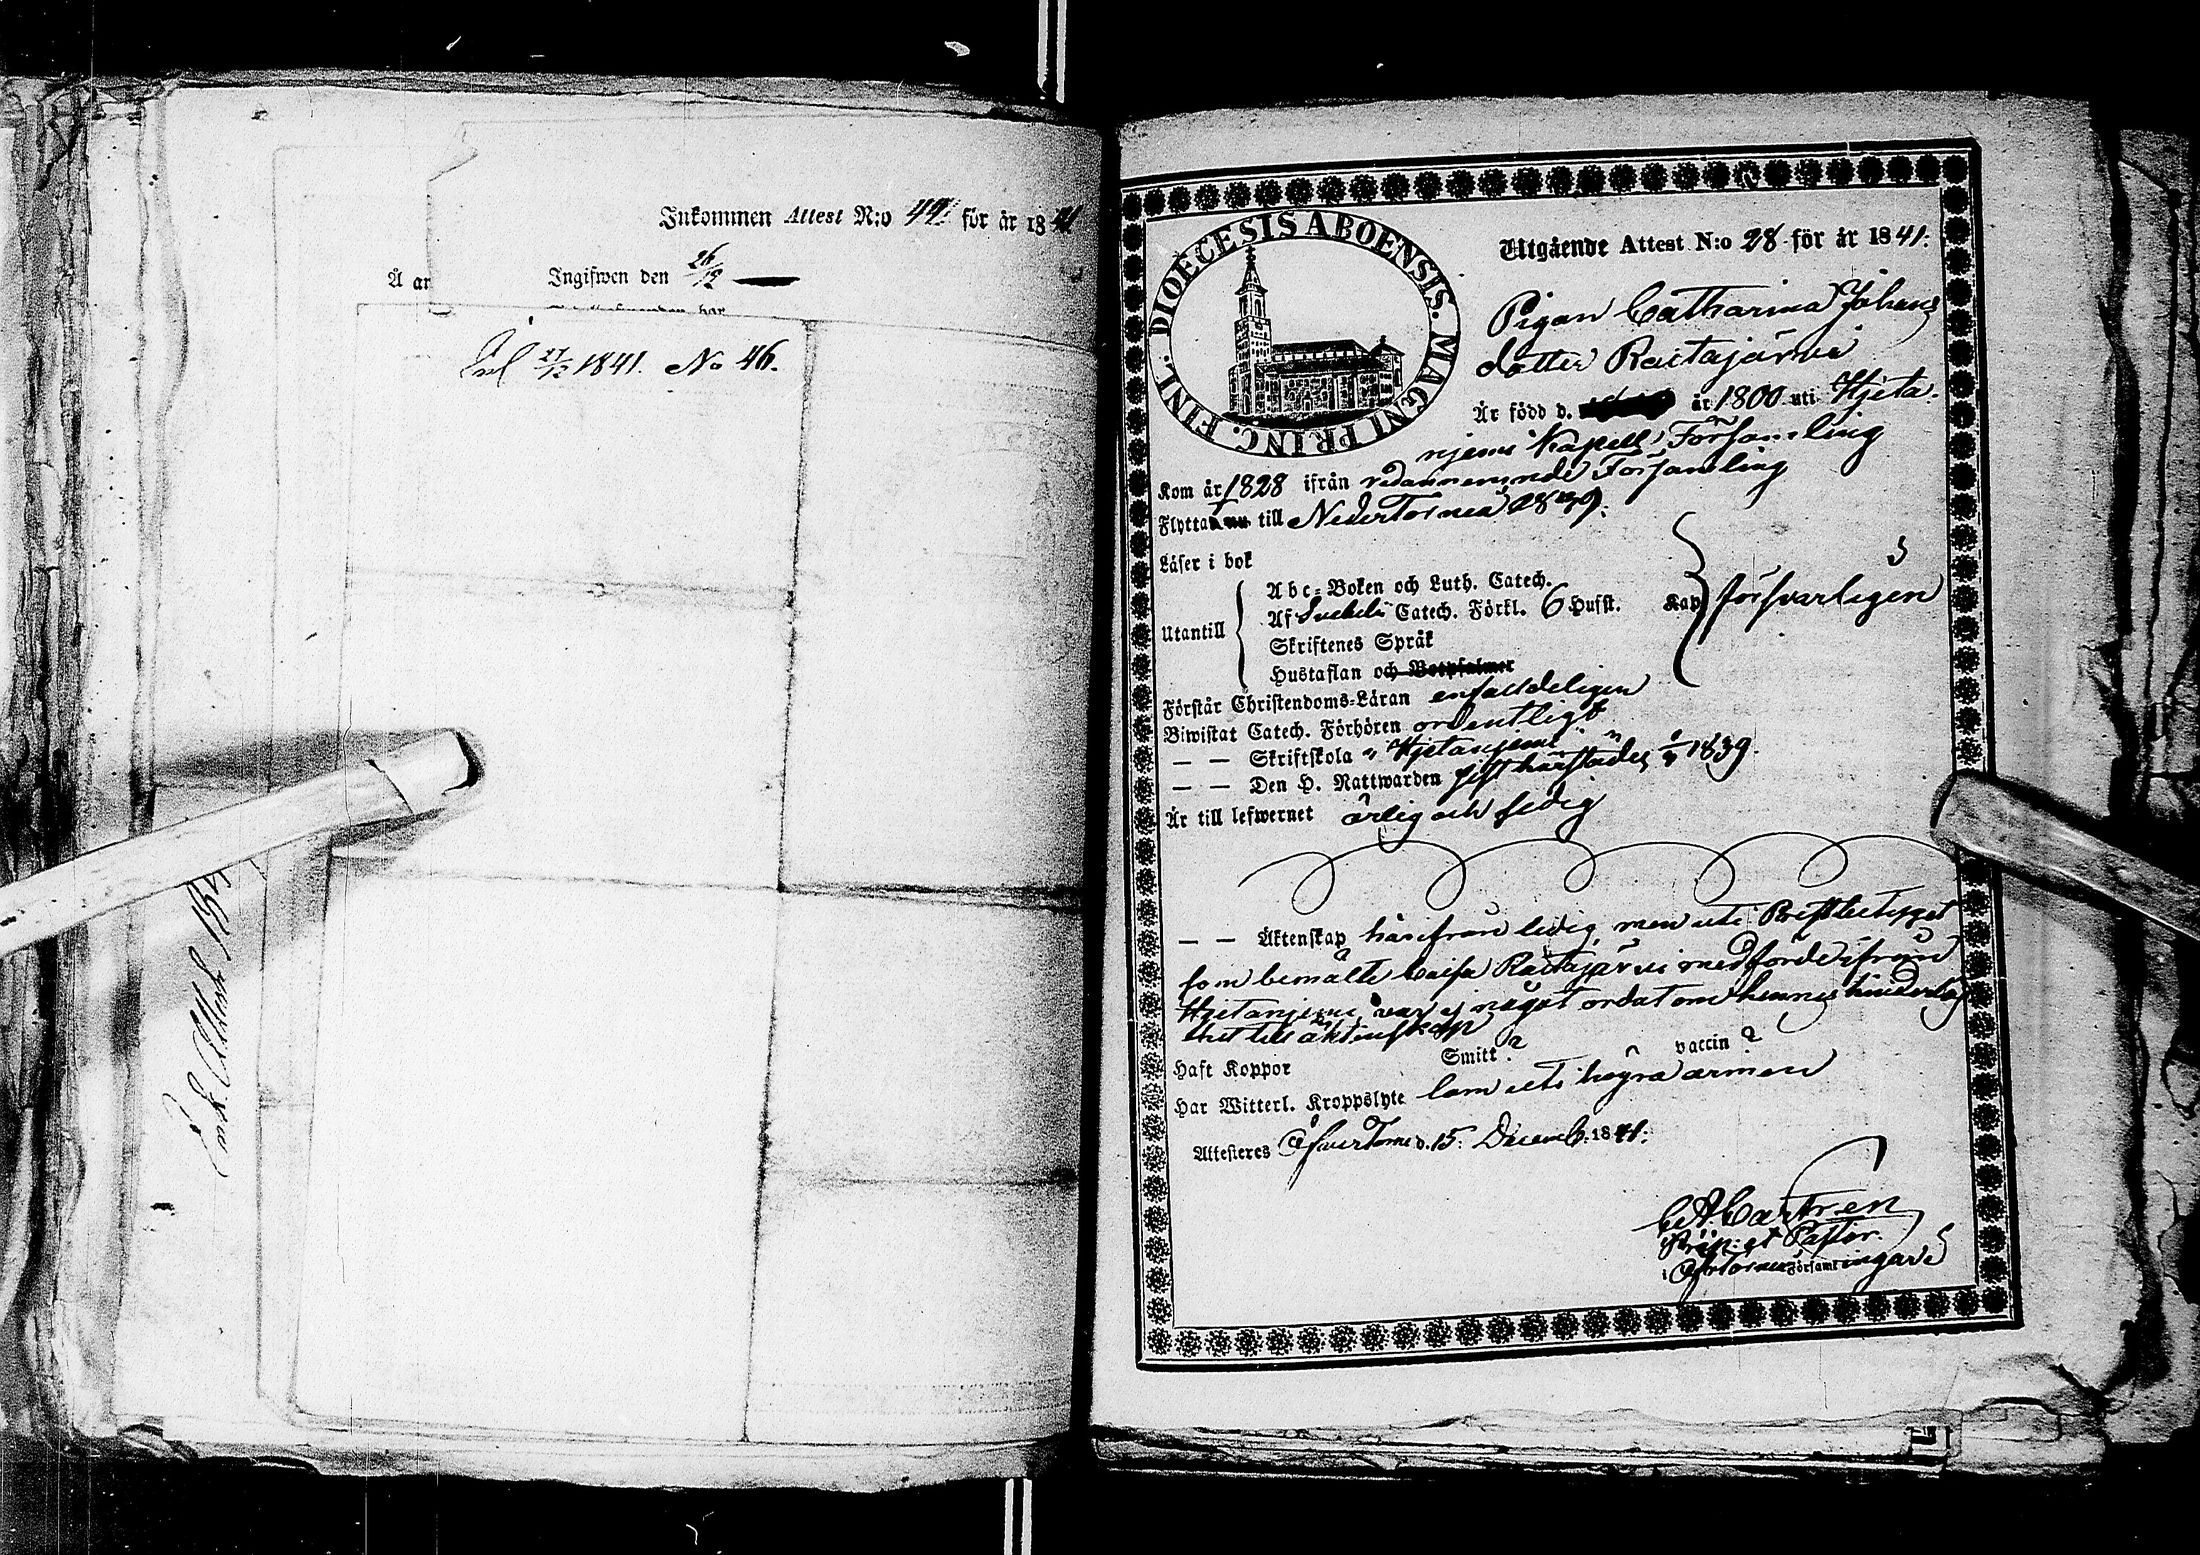 Inkommen Attest N:o 49 för år 1841
Å an
Ingifwen den 26/12
Inl 27/12 1841. No 46.
Ink. Attest
DIOECESIS ABOENSIS. MAGNI PRINC. FINL.
Utgående Attest N:o 28 för år 1841.
Pigan Catharina Johans
dotter Raitajärvi
Är född d. år 1800 uti Hjeta-
njemi Kapells Församling
Kom år 1828 ifrån redannemnde Församling
Flytta till NederTorneå 1839.
Läser i bok
Utantill
Abc-Boken och Luth. Catech.
Af Svebeli Catech. Förkl. 6 Hufst. Kap försvarligen
Skriftenes Språk
Hustaflan och Botpsalmer
Förstår Christendoms-Läran enfaldeligen
Biwistat Catech. Förhören ordentligt
— — Skriftskola " Hjetanjemi "
— — Den H. Nattwarden sist härstädes 1839.
Är till lefwernet ärlig och fedig
— — Äktenskap härifrån ledig, men uti Prestbetyget
som bemälte Caisa Raitajärvi medförde ifrån
Hjetanjemi, var ej något ordat om hennes hinderlös
het till äktenskap
Haft Koppor Smitt? vaccin?
Har Witterl. Kroppslyte lam uti högra armen
Attesteres ÖfverTorne d. 15. Decemb. 1841.
C A Castren
Präp. et Pastor
i Öfvertorneå Församlingar